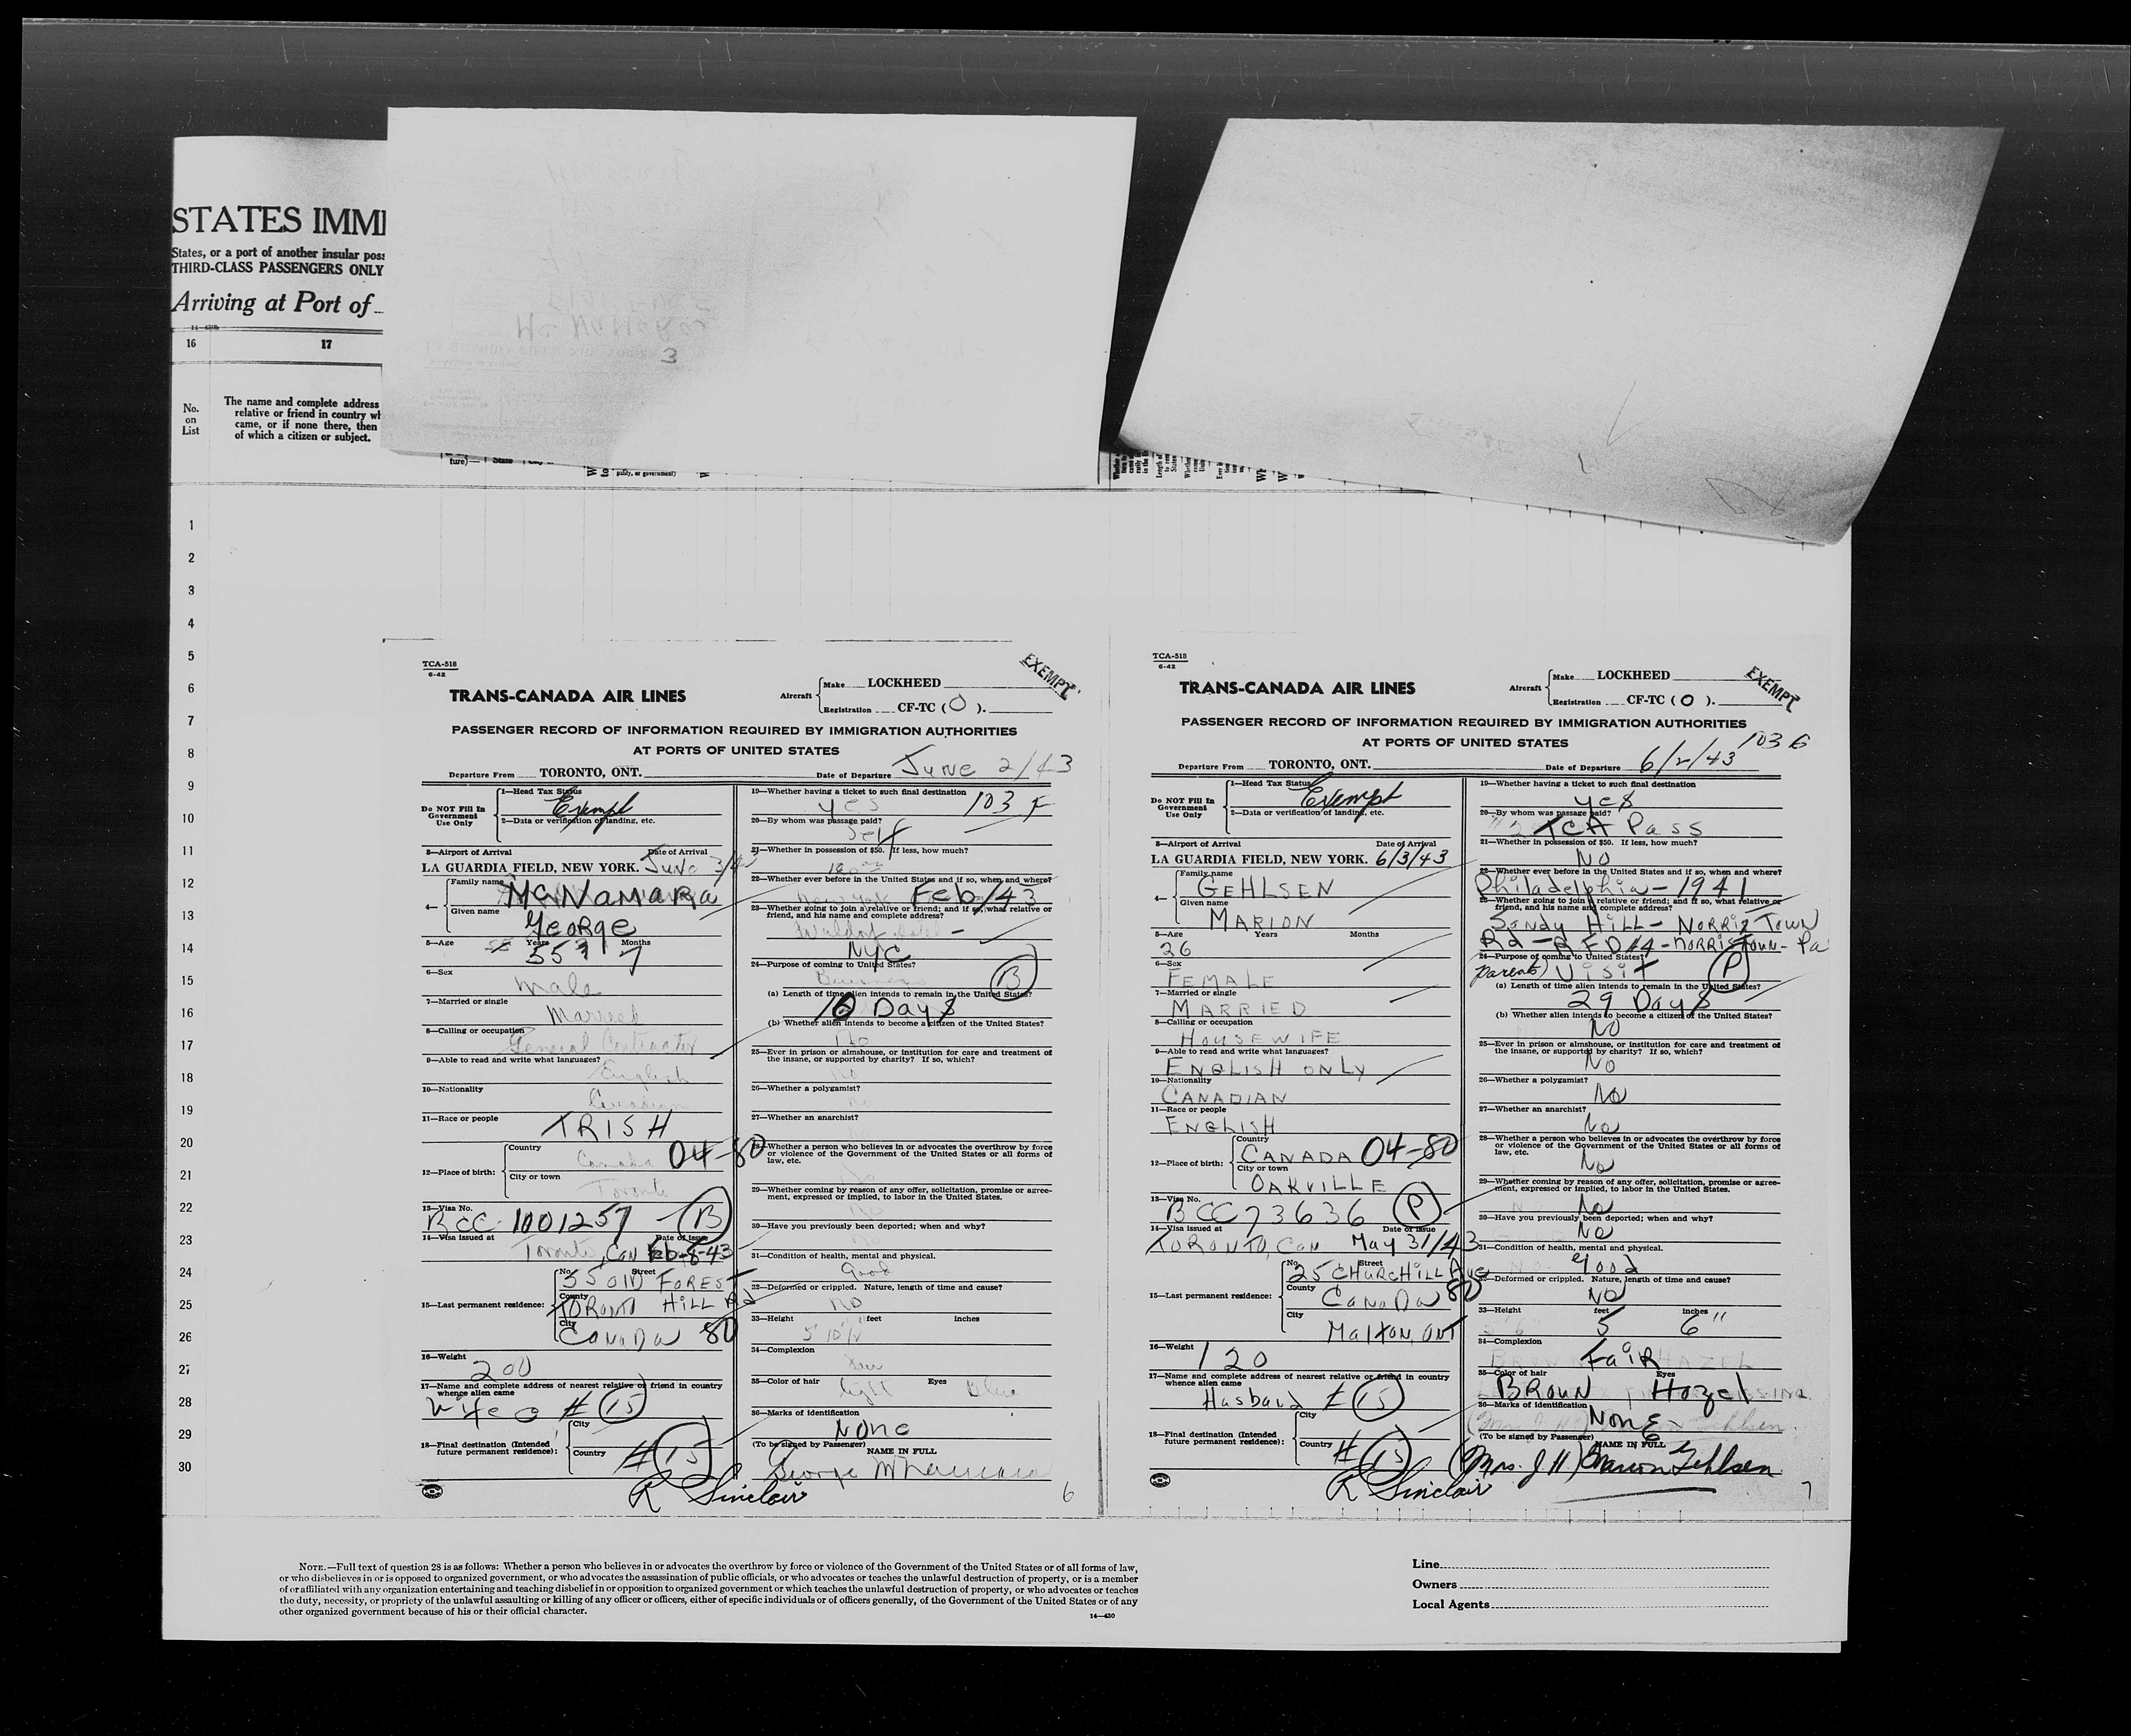 STATES IMMI
States, or a port of another insular poss
THIRD-CLASS PASSENGERS ONLY
Arriving at Port of
16 17
No. on List
The name and complete address
relative or friend in country wh
came, or if none there, then
of which a citizen or subject.
ture)— State
pality, or government)
1
2
3
4
5
6
7
8
9
10
11
12
13
14
15
16
17
18
19
20
21
22
23
24
25
26
27
28
29
30
TCA-518
6-42
EXEMPT
TRANS-CANADA AIR LINES
Aircraft Make LOCKHEED
Registration CF-TC ( O ).
PASSENGER RECORD OF INFORMATION REQUIRED BY IMMIGRATION AUTHORITIES
AT PORTS OF UNITED STATES
Departure From TORONTO, ONT. Date of Departure June 2/43
Do NOT Fill In Government Use Only
1—Head Tax Status Exempt
2—Data or verification of landing, etc.
3—Airport of Arrival Date of Arrival
LA GUARDIA FIELD, NEW YORK. June 3/43
4— Family name McNamara
Given name George
5—Age Years Months
55 7
6—Sex
Male
7—Married or single
Married
8—Calling or occupation
General Contractor
9—Able to read and write what languages?
English
10—Nationality
Canadian
11—Race or people
IRISH
12—Place of birth: Country Canada 04-80
City or town Toronto
13—Visa No.
BCC 1001257 B
14—Visa issued at Date of Issue
Toronto, Can Feb-8-43
15—Last permanent residence: No. Street 55 Old Forest
County Toronto Hill Rd
City Canada 80
16—Weight
200
17—Name and complete address of nearest relative or friend in country
whence alien came
Wife # 15
18—Final destination (Intended
future permanent residence): City
Country # 15
R Sinclair
19—Whether having a ticket to such final destination
yes 103 F
20—By whom was passage paid?
Self
21—Whether in possession of $50. If less, how much?
22—Whether ever before in the United States and if so, when and where?
New York Feb/43
23—Whether going to join a relative or friend; and if so, what relative or
friend, and his name and complete address?
Waldorf Hotel -
NYC
24—Purpose of coming to United States?
Business B
(a) Length of time alien intends to remain in the United States?
10 Days
(b) Whether alien intends to become a citizen of the United States?
No
25—Ever in prison or almshouse, or institution for care and treatment of
the insane, or supported by charity? If so, which?
No
26—Whether a polygamist?
No
27—Whether an anarchist?
28—Whether a person who believes in or advocates the overthrow by force
or violence of the Government of the United States or all forms of
law, etc.
No
29—Whether coming by reason of any offer, solicitation, promise or agree-
ment, expressed or implied, to labor in the United States.
No
30—Have you previously been deported; when and why?
No
31—Condition of health, mental and physical.
Good
32—Deformed or crippled. Nature, length of time and cause?
No
33—Height feet inches
34—Complexion
35—Color of hair Light Eyes Blue
36—Marks of identification
None
(To be signed by Passenger) NAME IN FULL
George McNamara
6
TCA-518
6-42
EXEMPT
TRANS-CANADA AIR LINES
Aircraft Make LOCKHEED
Registration CF-TC ( O ).
PASSENGER RECORD OF INFORMATION REQUIRED BY IMMIGRATION AUTHORITIES
AT PORTS OF UNITED STATES
103 G
Departure From TORONTO, ONT. Date of Departure 6/2/43
Do NOT Fill In Government Use Only
1—Head Tax Status Exempt
2—Data or verification of landing, etc.
3—Airport of Arrival Date of Arrival
LA GUARDIA FIELD, NEW YORK. 6/3/43
4— Family name GEHLSEN
Given name MARION
5—Age Years Months
26
6—Sex
FEMALE
7—Married or single
MARRIED
8—Calling or occupation
HOUSEWIFE
9—Able to read and write what languages?
ENGLISH ONLY
10—Nationality
CANADIAN
11—Race or people
ENGLISH
12—Place of birth: Country CANADA 04-80
City or town OAKVILLE
13—Visa No.
BCC 73636 P
14—Visa issued at Date of Issue
TORONTO, CAN May 31/43
15—Last permanent residence: No. Street 25 CHURCHILL Ave
County Canada 80
City Malton, ONT
16—Weight
120
17—Name and complete address of nearest relative or friend in country
whence alien came
Husband # 15
18—Final destination (Intended
future permanent residence): City
Country # 15
R Sinclair
19—Whether having a ticket to such final destination
yes
20—By whom was passage paid?
TCA Pass
21—Whether in possession of $50. If less, how much?
No
22—Whether ever before in the United States and if so, when and where?
Philadelphia - 1941
23—Whether going to join a relative or friend; and if so, what relative or
friend, and his name and complete address?
Sandy Hill - Norris Town
Rd - RFD #4 - Norristown - Pa
24—Purpose of coming to United States?
(Parents) Visit P
(a) Length of time alien intends to remain in the United States?
29 Days
(b) Whether alien intends to become a citizen of the United States?
No
25—Ever in prison or almshouse, or institution for care and treatment of
the insane, or supported by charity? If so, which?
No
26—Whether a polygamist?
No
27—Whether an anarchist?
No
28—Whether a person who believes in or advocates the overthrow by force
or violence of the Government of the United States or all forms of
law, etc.
No
29—Whether coming by reason of any offer, solicitation, promise or agree-
ment, expressed or implied, to labor in the United States.
No
30—Have you previously been deported; when and why?
No
31—Condition of health, mental and physical.
Good
32—Deformed or crippled. Nature, length of time and cause?
No
33—Height feet inches
5 6"
34—Complexion
Fair
35—Color of hair Eyes
Brown Hazel
36—Marks of identification
None
(To be signed by Passenger) NAME IN FULL
(Mrs. J H) Marion Gehlsen
7
NOTE.—Full text of question 28 is as follows: Whether a person who believes in or advocates the overthrow by force or violence of the Government of the United States or of all forms of law,
or who disbelieves in or is opposed to organized government, or who advocates the assassination of public officials, or who advocates or teaches the unlawful destruction of property, or is a member
of or affiliated with any organization entertaining and teaching disbelief in or opposition to organized government or which teaches the unlawful destruction of property, or who advocates or teaches
the duty, necessity, or propriety of the unlawful assaulting or killing of any officer or officers, either of specific individuals or of officers generally, of the Government of the United States or of any
other organized government because of his or their official character.
14—430
Line
Owners
Local Agents